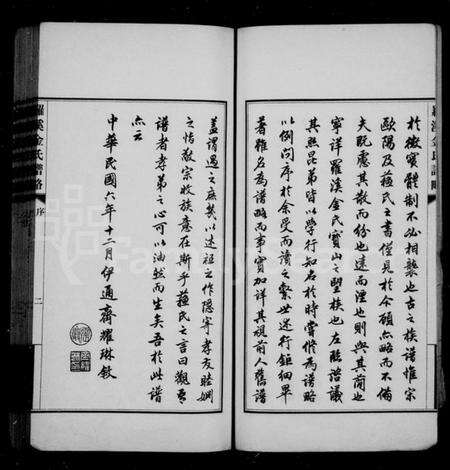 於徵實體制不必相襲也古之族譜惟宗
歐陽及蘇氏之書僅見於今顧亦略而不備
夫既慮其散而紛也遠而湮也則與其簡也
寧詳羅溪金氏寶山之望族也左臨諮議
其熙昆弟皆以學行知名於時嘗脩為譜略
以例問序於余受而讀之繫世述行鉅細畢
著雖名為譜略而事實加詳其視前人舊譜
蓋謂過之庶幾以述祖之作隱寓孝友睦婣
之恉敬宗收族意在斯乎蘇氏之言曰觀吾
譜者孝弟之心可以油然而生矣吾於此譜
亦云
中華民國六年十二月伊通齊耀琳敘
羅溪金氏譜略
序
二
羅溪金氏譜略
FamilySearch